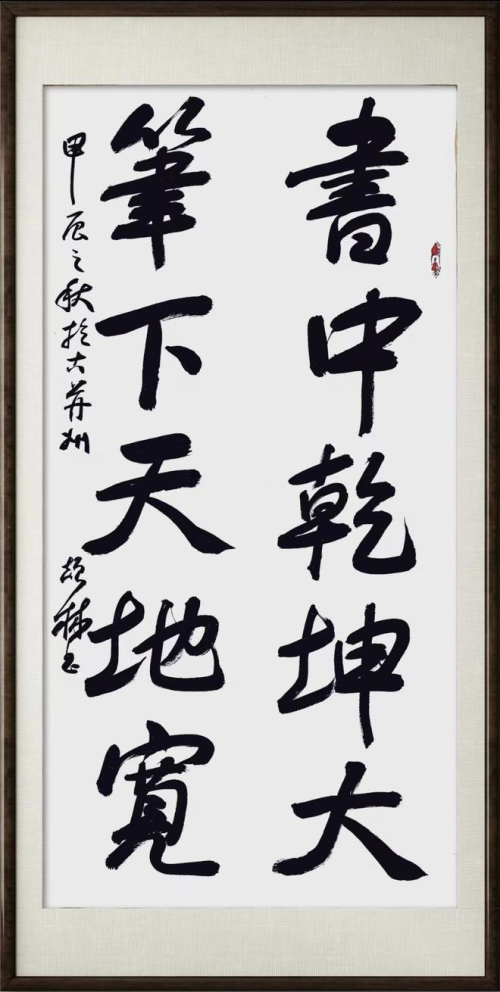 書中乾坤大
筆下天地寬
甲辰之秋於古并州
林書